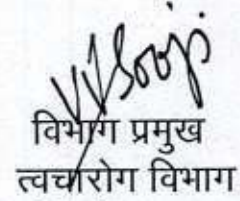 विभाग प्रमुख
त्वचारोग विभाग